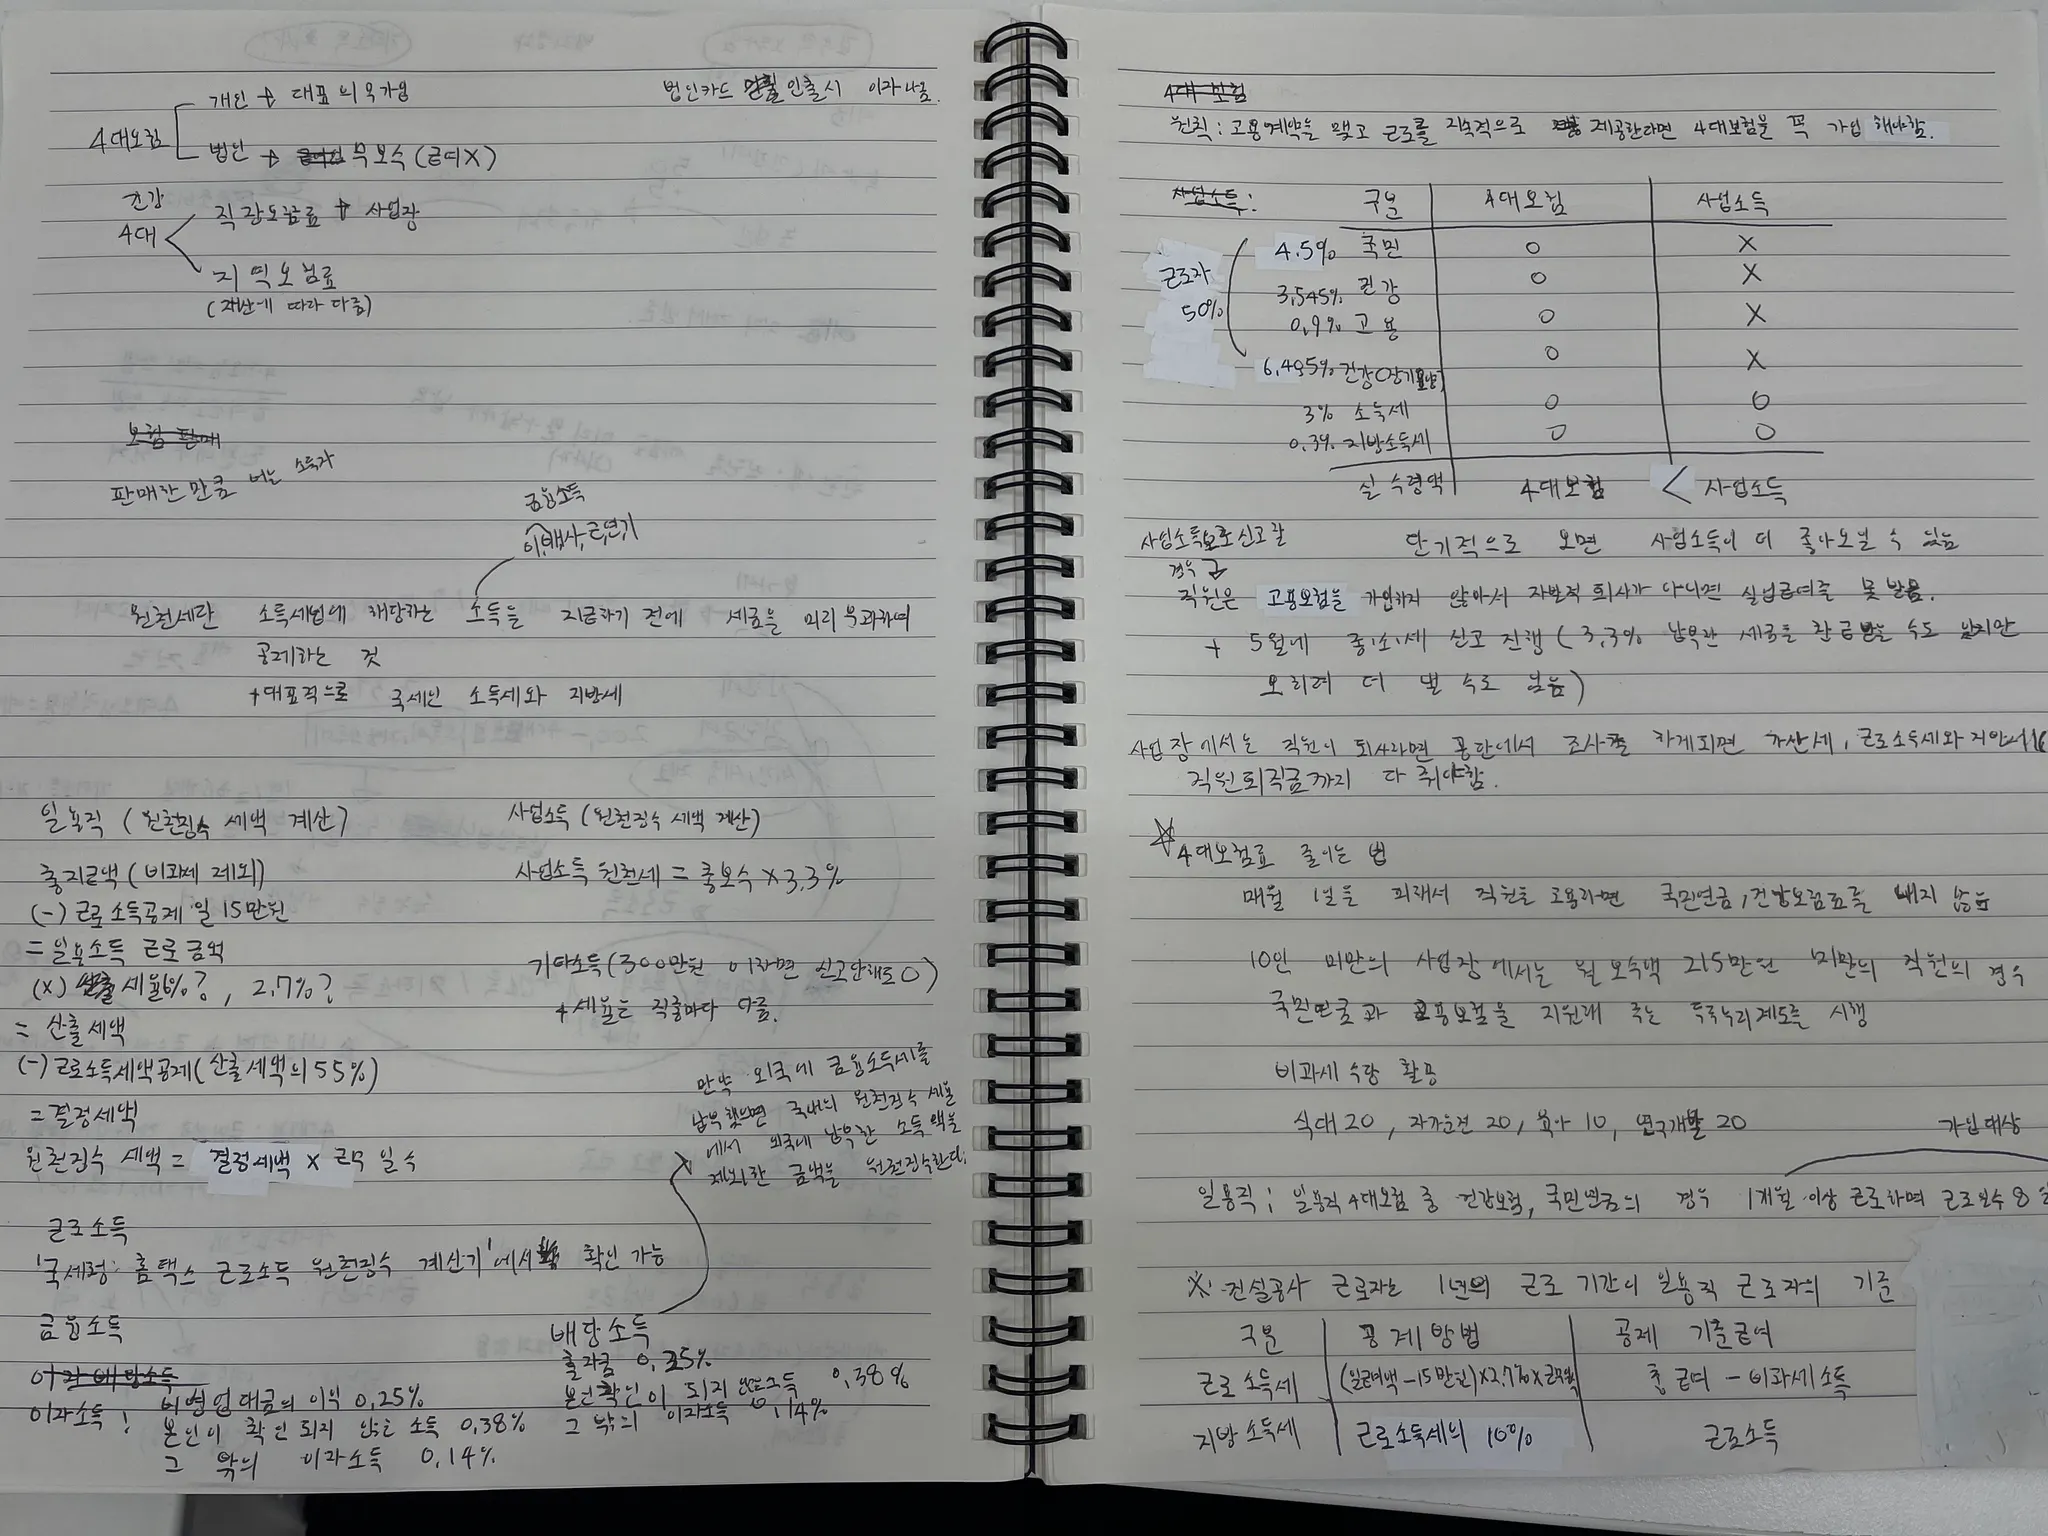 개인 → 대표 의무가입
법인카드 인출시 이자나옴.
4대보험
법인 → 무보수 (급여X)
건강
4대
직장보험료 → 사업장
지역보험료
(재산에 따라 다름)
보험 판매
판매한 만큼 버는 소득자
금융소득
이,배,사,근,연,기
원천세란 소득세법에 해당하는 소득을 지급하기 전에 세금을 미리 부과하여
공제하는 것
→대표적으로 국세인 소득세와 지방세
일용직 (원천징수 세액 계산)
총지급액 (비과세 제외)
(-) 근로소득공제 일 15만원
= 일용소득 근로금액
(x) 세율6%?, 2.7%?
= 산출세액
(-) 근로소득세액공제 (산출세액의 55%)
= 결정세액
원천징수 세액 = 결정세액 x 근무 일수
사업소득 (원천징수 세액 계산)
사업소득 원천세 = 총보수 x 3.3%
기타소득 (300만원 이하면 신고안해도 O)
→ 세율은 직종마다 다름.
만약 외국에 금융소득세를
납부했으면 국내의 원천징수 세율
에서 외국에 납부한 소득액을
제외한 금액을 원천징수한다.
근로소득
'국세청: 홈택스 근로소득 원천징수 계산기'에서 확인 가능
금융소득
이자 배당소득
이자소득: 비영업대금의 이익 0.25%
본인이 확인 되지 않는 소득 0.38%
그 밖의 이자소득 0.14%
배당소득
출자금 0.25%
본인확인이 되지 않는소득 0.38%
그 밖의 이자소득 0.14%
4대 보험
원칙: 고용계약을 맺고 근로를 지속적으로 제공한다면 4대보험을 꼭 가입 해야함.
사업소득:
구분 4대보험 사업소득
근로자
50%
4.5% 국민 O X
3.545% 건강 O X
0.9% 고용 O X
6.495% 건강(장기요양) O X
3% 소득세 O O
0.3% 지방소득세 O O
실 수령액 4대보험 < 사업소득
사업소득으로 신고할
경우
단기적으로 보면 사업소득이 더 좋아보일 수 있음
직원은 고용보험을 가입하지 않아서 자발적 퇴사가 아니면 실업급여를 못 받음.
+ 5월에 종.소.세 신고 진행 (3.3% 납부한 세금을 환급받을 수도 있지만
오히려 더 낼 수도 있음)
사업장에서는 직원이 퇴사하면 공단에서 조사를 하게되면 가산세, 근로소득세와 지방세
직원퇴직금까지 다 줘야함.
☆4대보험료 줄이는 법
매월 1일을 피해서 직원을 고용하면 국민연금, 건강보험료를 내지 않음
10인 미만의 사업장에서는 월 보수액 215만원 미만의 직원의 경우
국민연금과 고용보험을 지원해 주는 두루누리제도를 시행
비과세 수당 활용
식대 20, 자가운전 20, 육아 10, 연구개발 20
가입대상
일용직: 일용직 4대보험 중 건강보험, 국민연금의 경우 1개월 이상 근로하며 근로일수 8일
※ 건설공사 근로자는 1년의 근로 기간이 일용직 근로자의 기준
구분 공제방법 공제 기준급여
근로소득세 (일급여액-15만원)x2.7%x근무일수 총 급여 - 비과세소득
지방소득세 근로소득세의 10% 근로소득